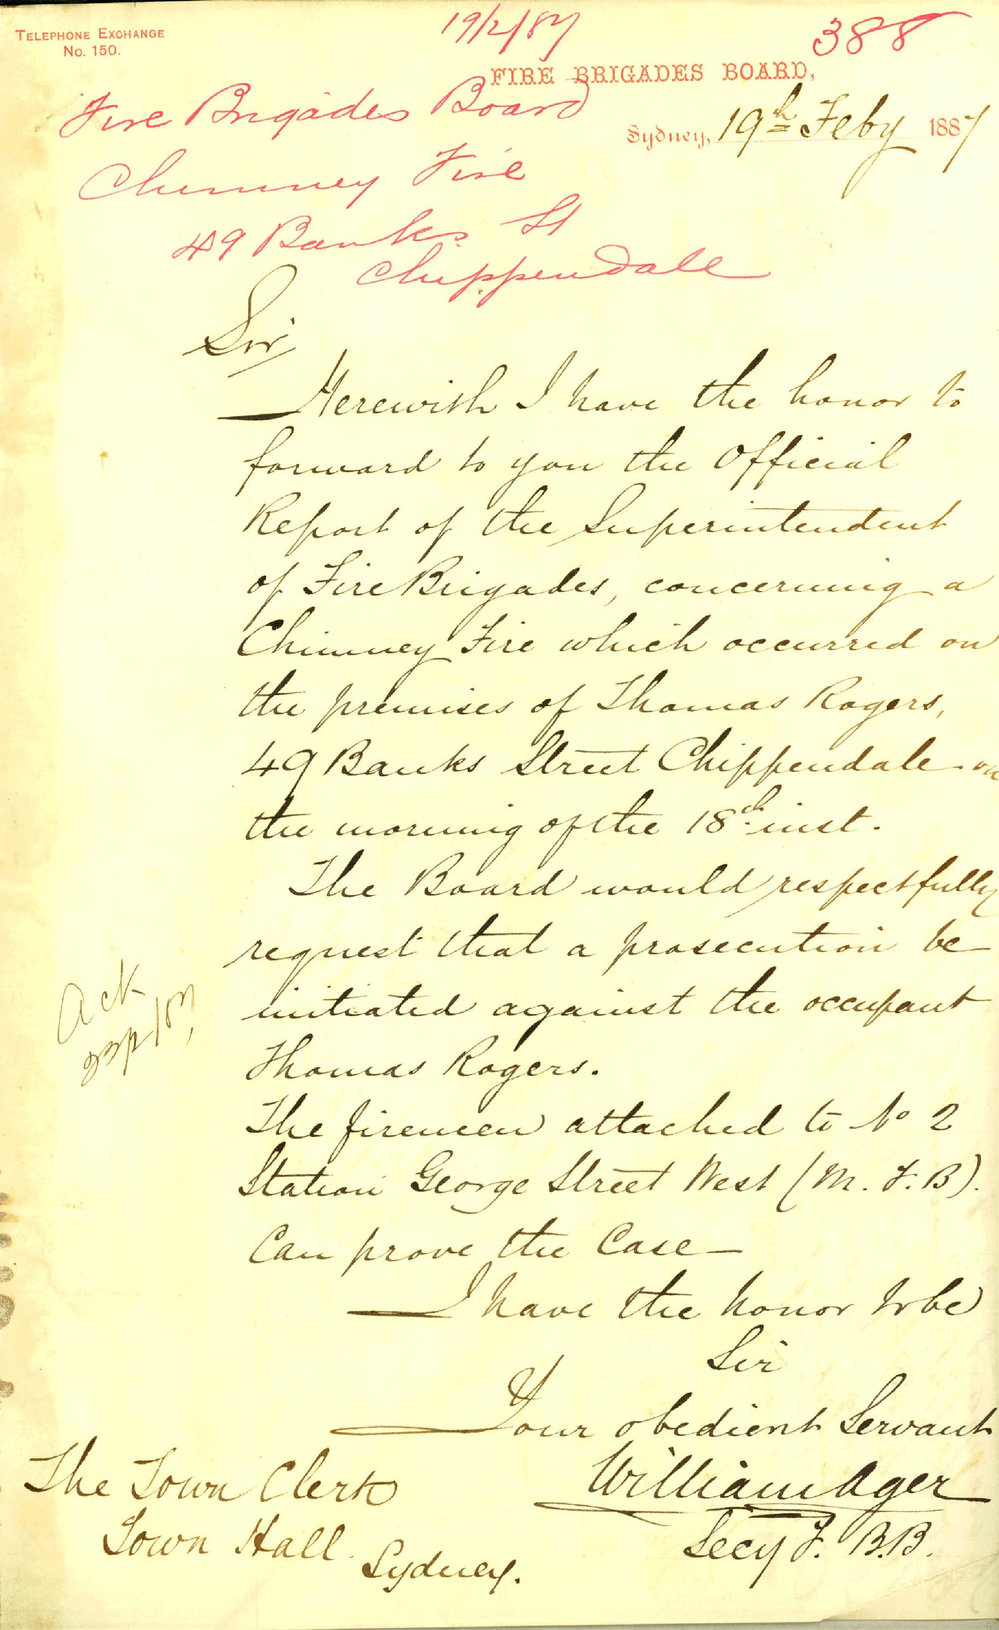 TELEPHONE EXCHANGE
No. 150.
19/2/87
388
FIRE BRIGADES BOARD,
Sydney, 19th Feby 1887
Fire Brigades Board
Chimney Fire
49 Banks St
Chippendale
Sir,
Herewith I have the honor to
forward to you the Official
Report of the Superintendent
of Fire Brigades, concerning a
Chimney Fire which occurred on
the premises of Thomas Rogers,
49 Banks Street Chippendale on
the morning of the 18th inst.
The Board would respectfully
request that a prosecution be
initiated against the occupant
Thomas Rogers.
The firemen attached to No 2
Station George Street West (M. F. B).
Can prove the Case—
Ack
I have the honor to be
Sir
Your obedient Servant
William Ager
Secy F. B.B.
The Town Clerk
Town Hall
Sydney.